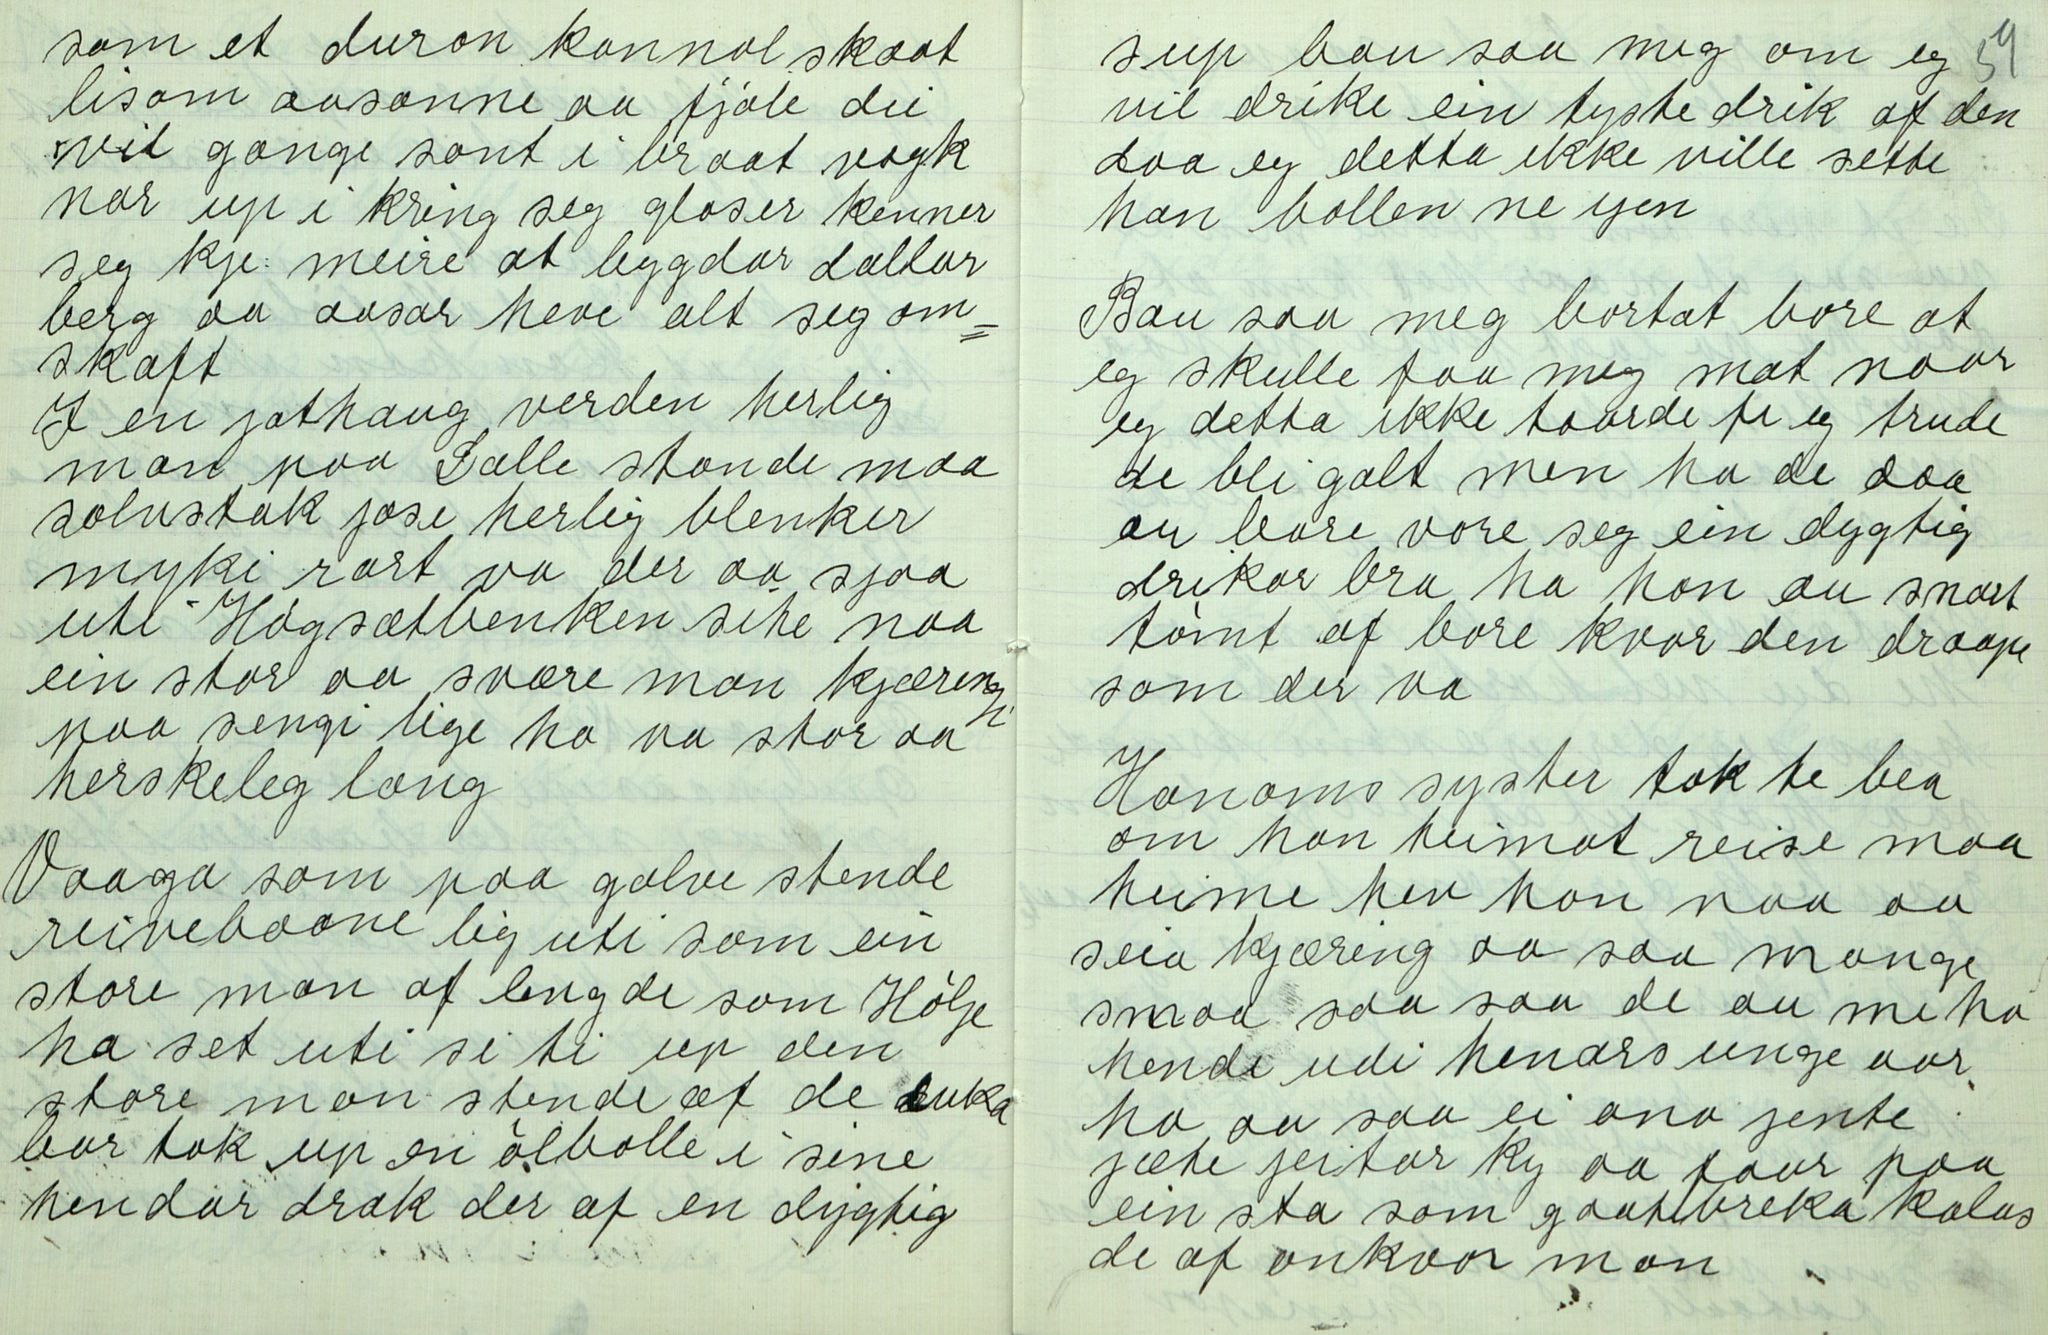 som et duron kannol skaat
lisom aasanne aa fjöle dei
vil gange sant i braat vagk
nar up i kring seg glaser kenner
seg kje meire at bygdar daltar
berg aa aasar heve alt seg om=
skaft
I en jathaug verden herlig
man paa Pælle stande maa
solvstak jase herlig blenker
myki rart va der aa sjaa
uti Högsætbenken sihe naa
ein stor aa svære man kjæreng
i
paa sengi lige ha va stor aa
herskeleg lang
Vaaga som paa galve stende
reivebaane lig uti som ein
store man af lengde som Hölje
ha set uti si ti up den
store man stende af de duka
bor tok up en ölbolle i sine
hendar drak der af en dygtig
59
sup bau saa meg om eg
vil drike ein tyste drik af den
daa eg detta ikke ville sette
han bollen ne igen
Bau saa meg bortat bore at
eg skulle faa meg mat naar
eg detta ikke taarde fr eg trude
de bli galt men ha de daa
au bare vore seg ein dygtig
drikar bra ha han au snart
tömt af bore kvar den draape
som der va
Hanoms syster tok te bea
om han heimat reise maa
heime hev han naa aa
seia kjæring aa saa mange
smaa saa saa de au me ha
hende udi henars unge aar
ha au saa ei ana jente
jæte jeitar ky aa faar paa
ein sta som gaatebreka kalas
de af ankvor man